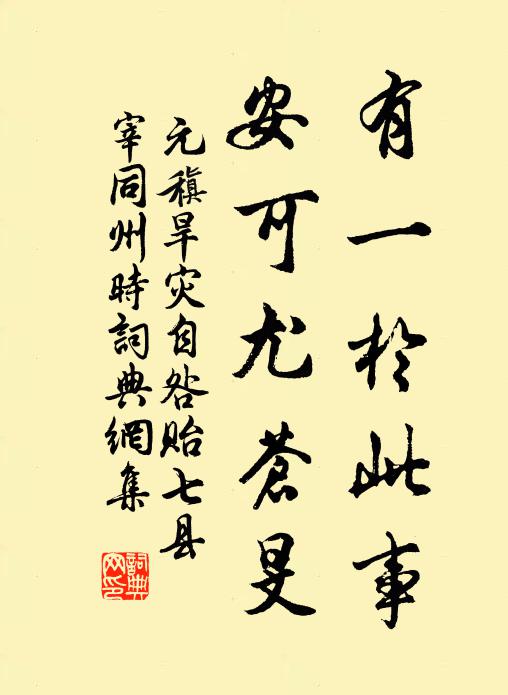 有一於此事
安可尤蒼旻
元稹旱灾自咎贻七县
宰同州時詞典網集
詞典
网印